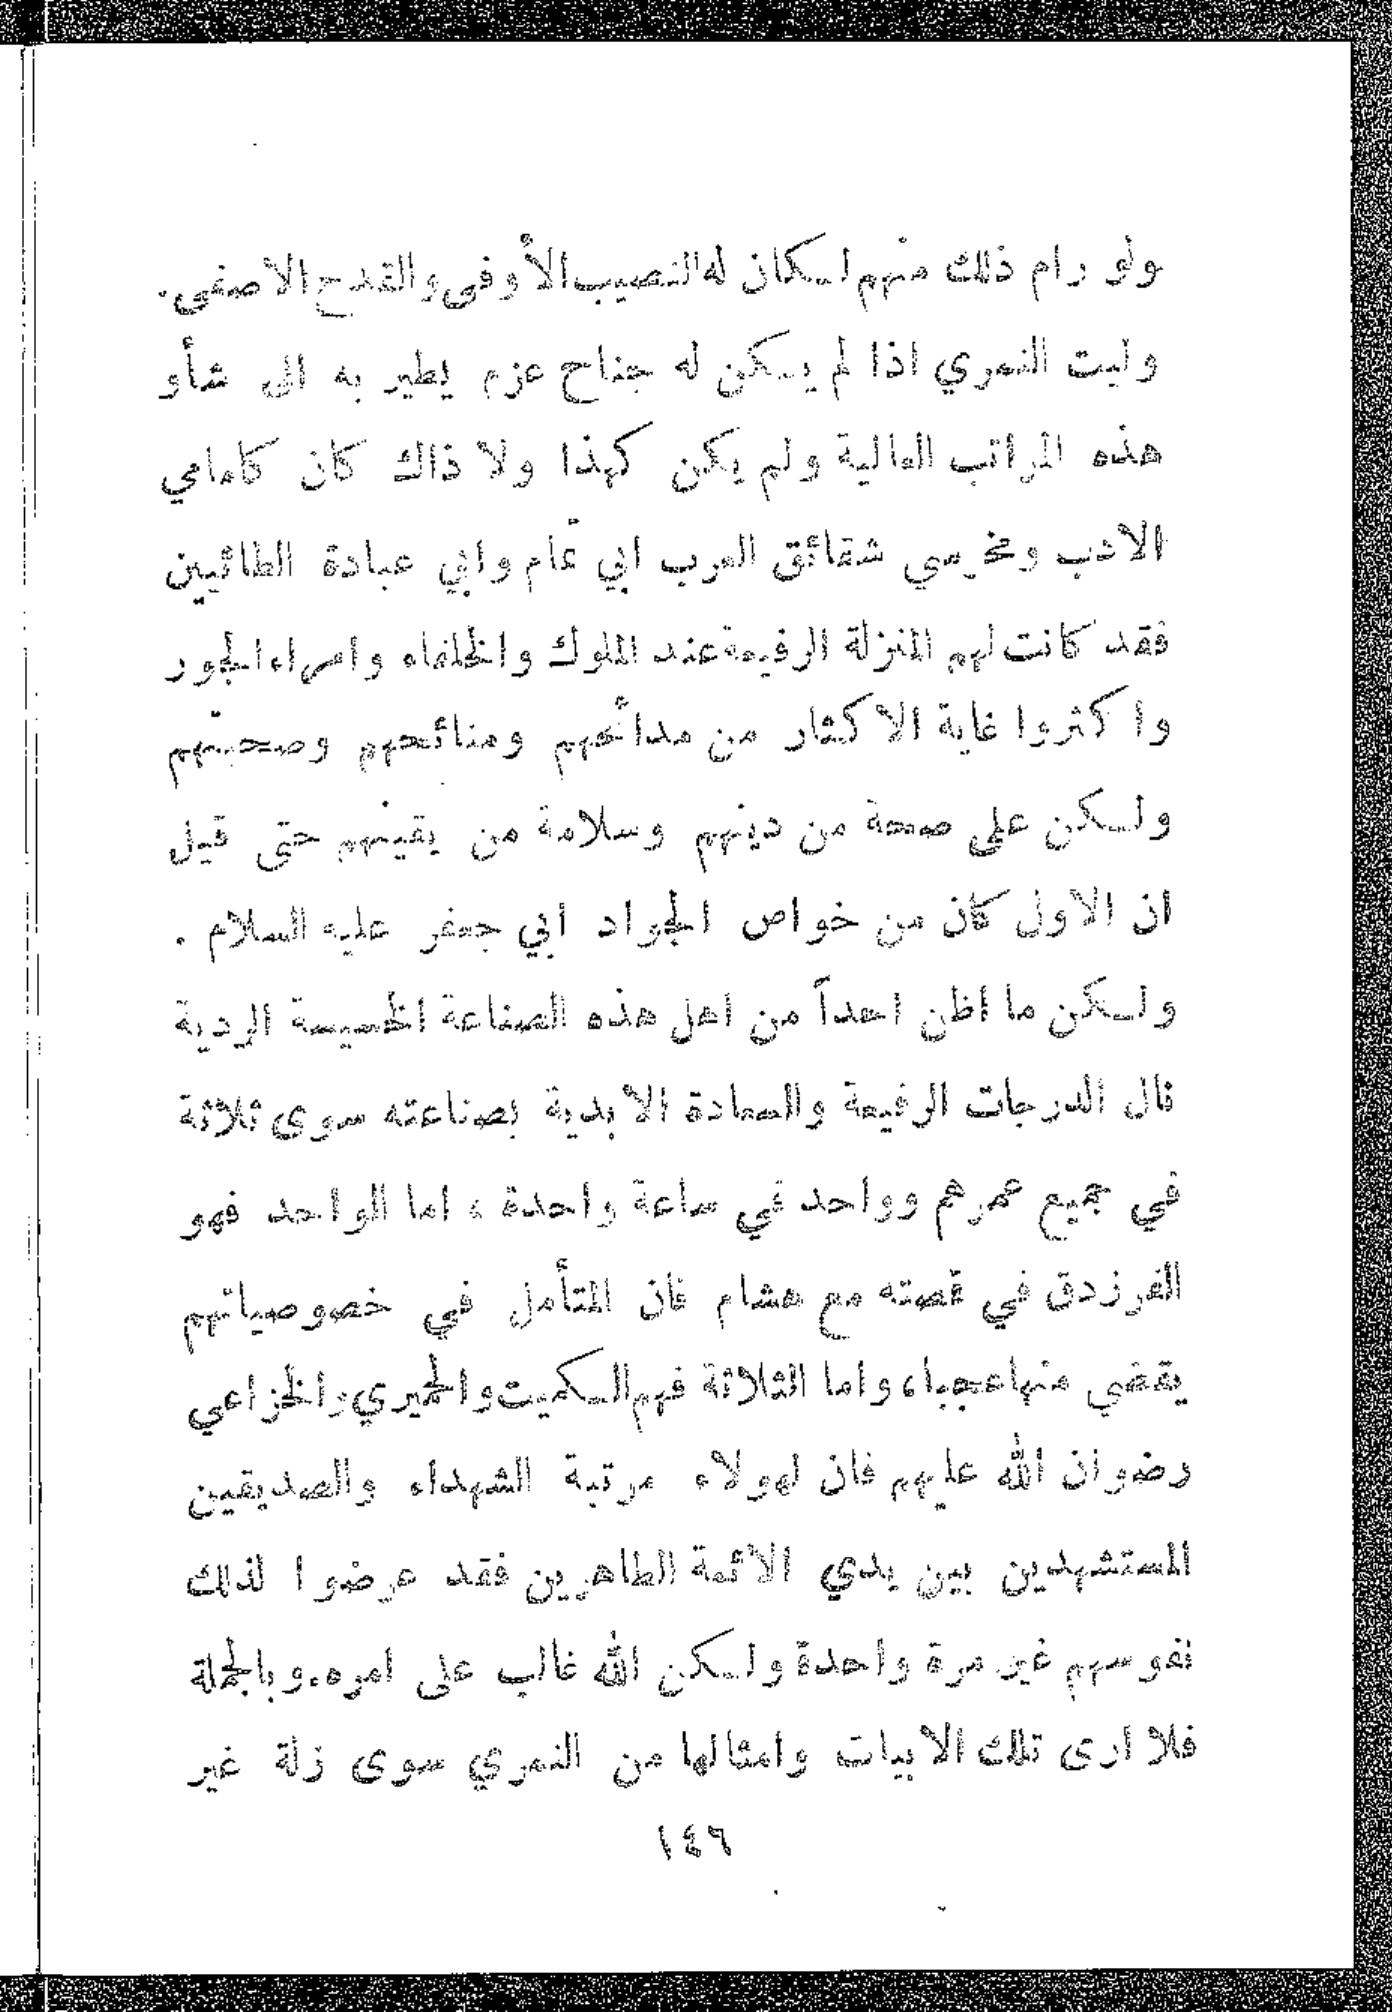 ولو رام ذلك منهم لكان له النصيب الأوفى والقدح الاصفى.
وليت النمري اذا لم يكن له جناح عزم يطير به الى شأو
هذه المراتب العالية ولم يكن كهذا ولا ذاك كان كامامي
الادب ومخرسي شقائق العرب ابي تمّام وابي عبادة الطائيين
فقد كانت لهم المنزلة الرفيعة عند الملوك والخلفاء وامراء الجور
واكثروا غاية الاكثار من مدائحهم ومنائحهم وصحبتهم
ولكن على صحة من دينهم وسلامة من يقينهم حتى قيل
ان الاول كان من خواص الجواد ابي جعفر عليه السلام .
ولكن ما اظن احداً من اهل هذه الصناعة الخسيسة الردية
نال الدرجات الرفيعة والسعادة الابدية بصناعته سوى ثلاثة
في جميع عمرهم وواحد في ساعة واحدة ، اما الواحد فهو
الفرزدق في قصته مع هشام فان المتأمل في خصوصياتهم
يقضي منها عجبا، واما الثلاثة فهم الكميت والحميري والخزاعي
رضوان الله عليهم فان لهولاء مرتبة الشهداء والصديقين
المستشهدين بين يدي الائمة الطاهرين فقد عرضوا لذلك
نفوسهم غير مرة واحدة ولكن الله غالب على امره. وبالجملة
فلا ارى تلك الابيات وامثالها من النمري سوى زلة غير
١٤٦